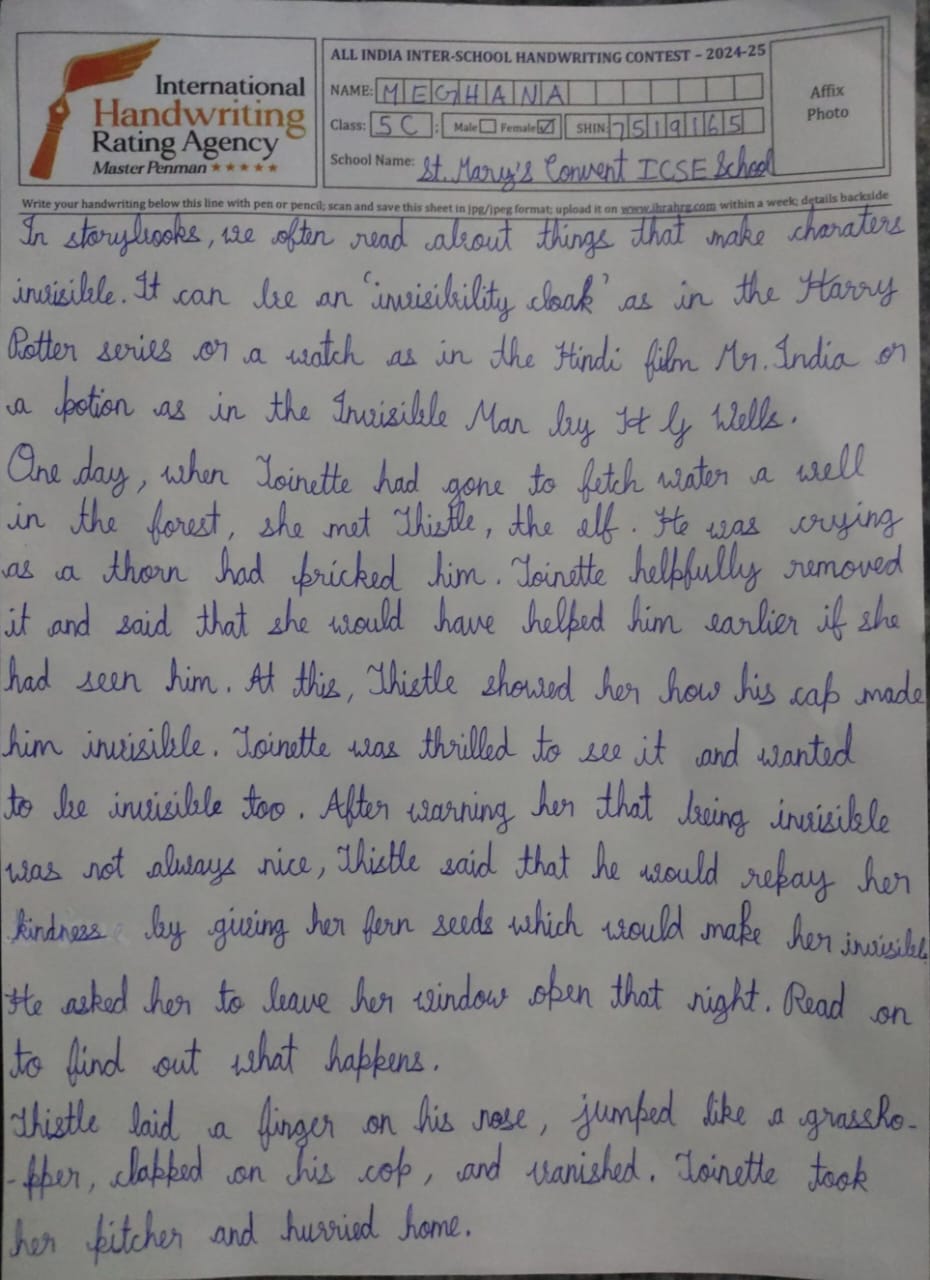 International
Handwriting
Rating Agency
Master Penman ★★★★★
ALL INDIA INTER-SCHOOL HANDWRITING CONTEST – 2024-25
NAME: MEGHANA
Class: 5C ; Male Female SHIN: 7519165
School Name: St. Mary's Convent ICSE School
Affix
Photo
Write your handwriting below this line with pen or pencil; scan and save this sheet in jpg/jpeg format; upload it on www.ihrahrg.com within a week; details backside
In storybooks, we often read about things that make charaters
invisible. It can be an 'invisibility cloak' as in the Harry
Potter series or a watch as in the Hindi film Mr. India or
a potion as in the Invisible Man by H G Wells.
One day, when Toinette had gone to fetch water a well
in the forest, she met Thistle, the elf. He was crying
as a thorn had pricked him. Toinette helpfully removed
it and said that she would have helped him earlier if she
had seen him. At this, Thistle showed her how his cap made
him invisible. Toinette was thrilled to see it and wanted
to be invisible too. After warning her that being invisible
was not always nice, Thistle said that he would repay her
kindness by giving her fern seeds which would make her invisible
He asked her to leave her window open that night. Read on
to find out what happens.
Thistle laid a finger on his nose, jumped like a grassho-
-pper, clapped on his cop, and vanished. Toinette took
her pitcher and hurried home.